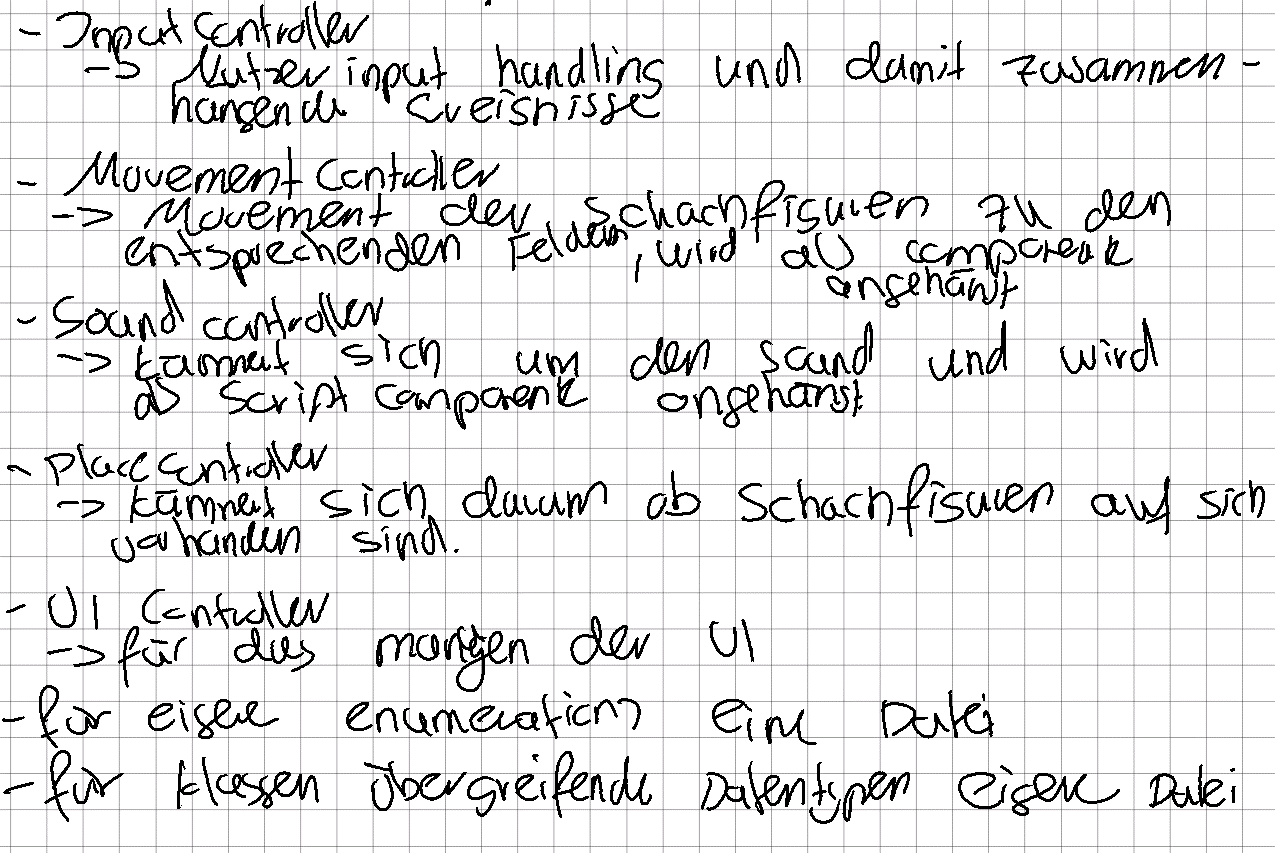 - Input Controller
-> Nutzer input handling und damit zusammen-
hängende Ereignisse
- Movement Controller
-> Movement der Schachfiguren zu den
entsprechenden Feldern, wird als component
angehängt
- Sound controller
-> kümmert sich um den Sound und wird
als Script component angehängt
- Place Controller
-> kümmert sich darum ob Schachfiguren auf sich
vorhanden sind.
- UI Controller
-> für das mangen der UI
- für eigene enumerations eine Datei
- für klassen übergreifende Datentypen eigene Datei